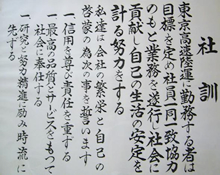 社訓
東京高速陸運に勤務する者は
目標を定め社員一同一致協力
のもと業務を遂行し社会に
貢献し自己の生活の安定を
計る努力をする
私達は会社の繁栄と自己の
啓蒙の為次の事を誓います
一信用を尊び責任を重する
一最高の品質とサービスをもって
社会に奉仕する
一研究と努力精進に励み時流に
先する